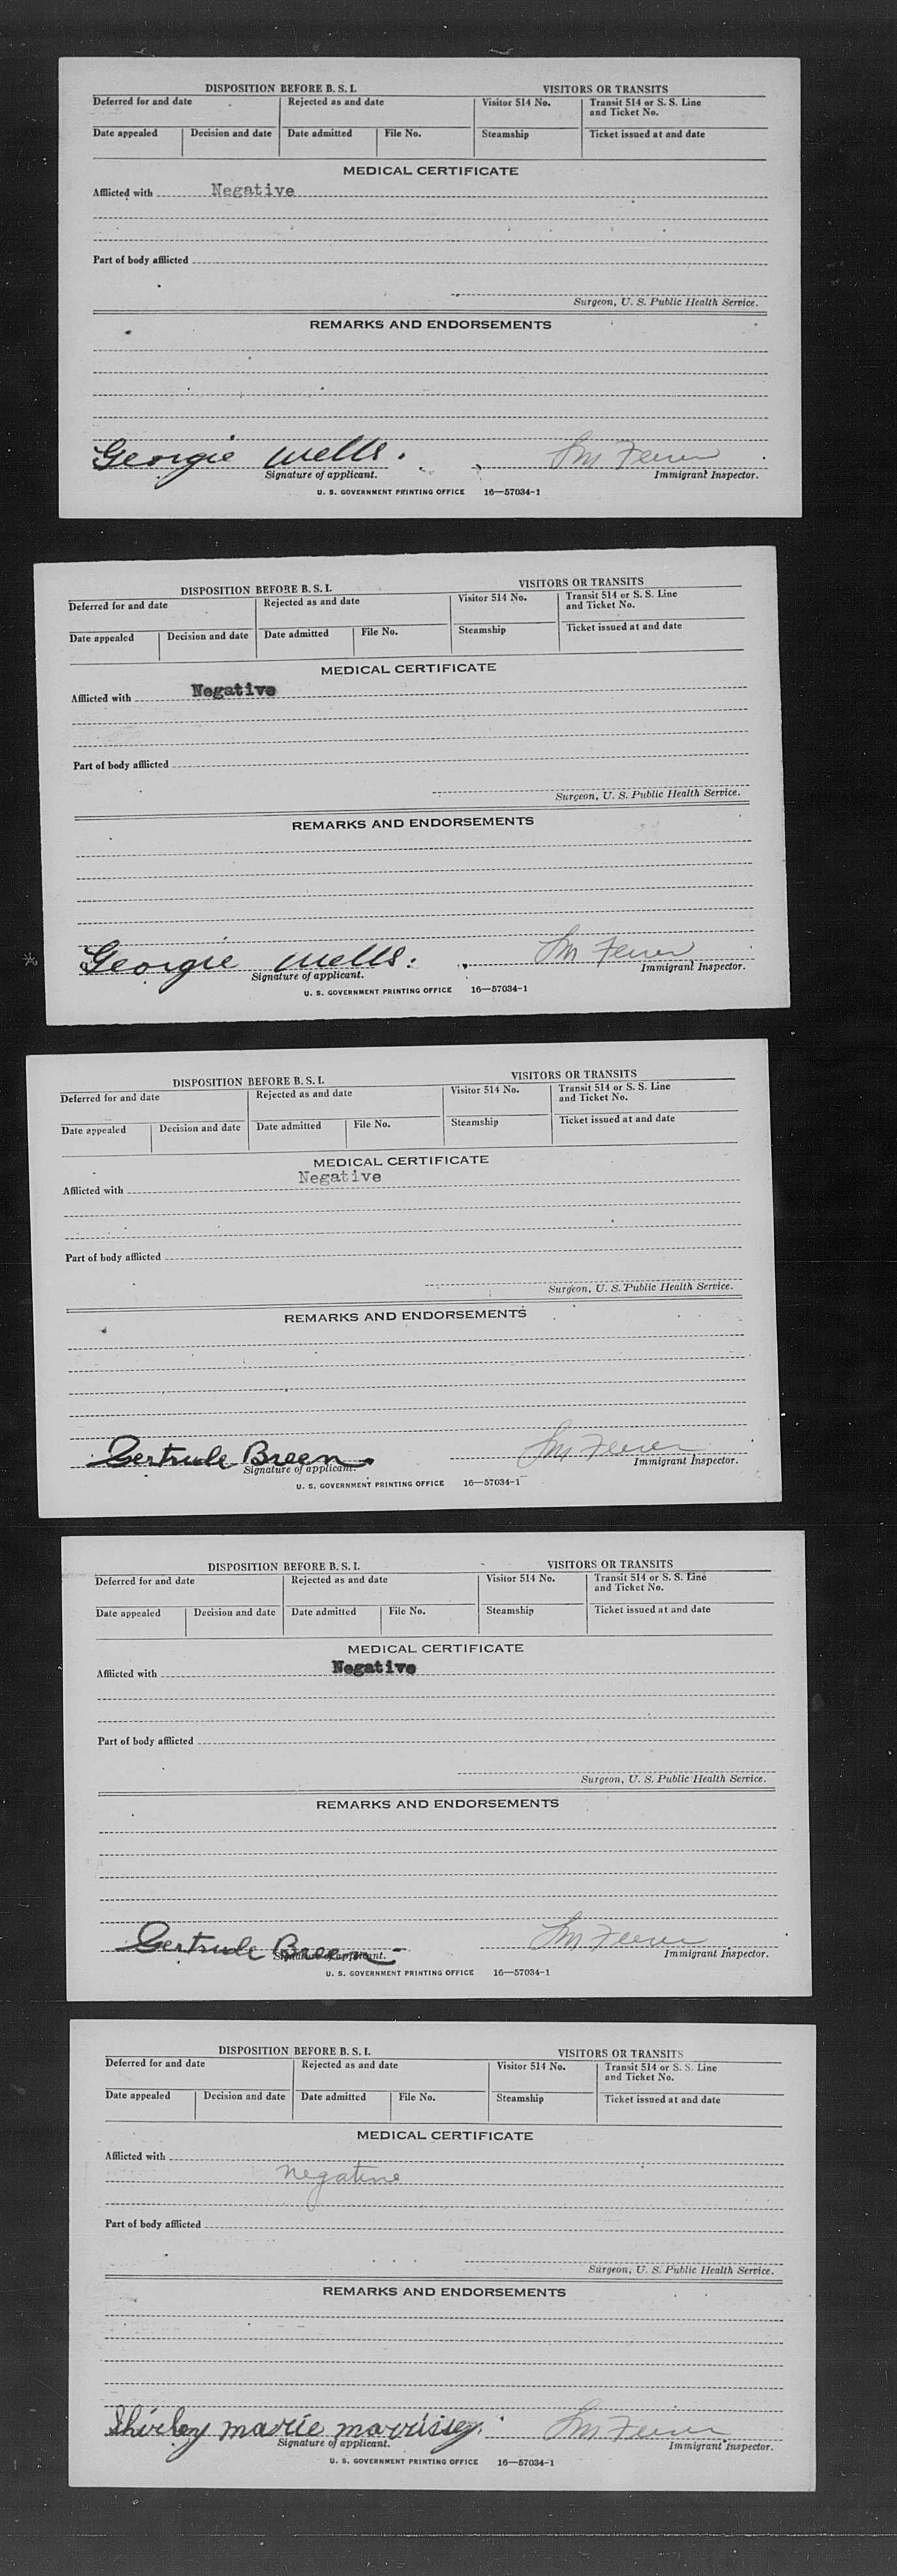 DISPOSITION BEFORE B. S. I. VISITORS OR TRANSITS
Deferred for and date Rejected as and date Visitor 514 No. Transit 514 or S. S. Line and Ticket No.
Date appealed Decision and date Date admitted File No. Steamship Ticket issued at and date
MEDICAL CERTIFICATE
Afflicted with Negative
Part of body afflicted
Surgeon, U. S. Public Health Service.
REMARKS AND ENDORSEMENTS
Georgie Wells.
Signature of applicant. Immigrant Inspector.
U. S. GOVERNMENT PRINTING OFFICE 16—57034-1
DISPOSITION BEFORE B. S. I. VISITORS OR TRANSITS
Deferred for and date Rejected as and date Visitor 514 No. Transit 514 or S. S. Line and Ticket No.
Date appealed Decision and date Date admitted File No. Steamship Ticket issued at and date
MEDICAL CERTIFICATE
Afflicted with Negative
Part of body afflicted
Surgeon, U. S. Public Health Service.
REMARKS AND ENDORSEMENTS
Georgie Wells.
Signature of applicant. Immigrant Inspector.
U. S. GOVERNMENT PRINTING OFFICE 16—57034-1
DISPOSITION BEFORE B. S. I. VISITORS OR TRANSITS
Deferred for and date Rejected as and date Visitor 514 No. Transit 514 or S. S. Line and Ticket No.
Date appealed Decision and date Date admitted File No. Steamship Ticket issued at and date
MEDICAL CERTIFICATE
Afflicted with Negative
Part of body afflicted
Surgeon, U. S. Public Health Service.
REMARKS AND ENDORSEMENTS
Gertrude Breen.
Signature of applicant. Immigrant Inspector.
U. S. GOVERNMENT PRINTING OFFICE 16—57034-1
DISPOSITION BEFORE B. S. I. VISITORS OR TRANSITS
Deferred for and date Rejected as and date Visitor 514 No. Transit 514 or S. S. Line and Ticket No.
Date appealed Decision and date Date admitted File No. Steamship Ticket issued at and date
MEDICAL CERTIFICATE
Afflicted with Negative
Part of body afflicted
Surgeon, U. S. Public Health Service.
REMARKS AND ENDORSEMENTS
Gertrude Breen
Signature of applicant. Immigrant Inspector.
U. S. GOVERNMENT PRINTING OFFICE 16—57034-1
DISPOSITION BEFORE B. S. I. VISITORS OR TRANSITS
Deferred for and date Rejected as and date Visitor 514 No. Transit 514 or S. S. Line and Ticket No.
Date appealed Decision and date Date admitted File No. Steamship Ticket issued at and date
MEDICAL CERTIFICATE
Afflicted with
Negative
Part of body afflicted
Surgeon, U. S. Public Health Service.
REMARKS AND ENDORSEMENTS
Shirley marie morrissey.
Signature of applicant. Immigrant Inspector.
U. S. GOVERNMENT PRINTING OFFICE 16—57034-1